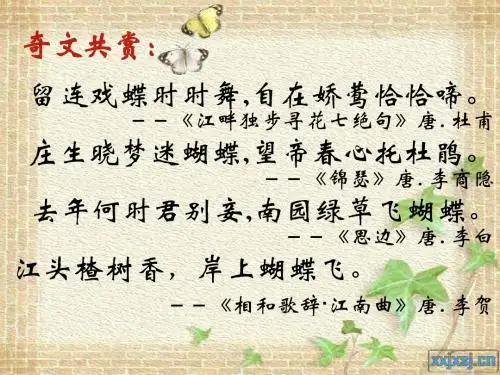 奇文共赏：
留连戏蝶时时舞,自在娇莺恰恰啼。
－－《江畔独步寻花七绝句》唐.杜甫
庄生晓梦迷蝴蝶,望帝春心托杜鹃。
－－《锦瑟》唐.李商隐
去年何时君别妾,南园绿草飞蝴蝶。
－－《思边》唐.李白
江头楂树香，岸上蝴蝶飞。
－－《相和歌辞·江南曲》唐.李贺
xxjxzj.cn